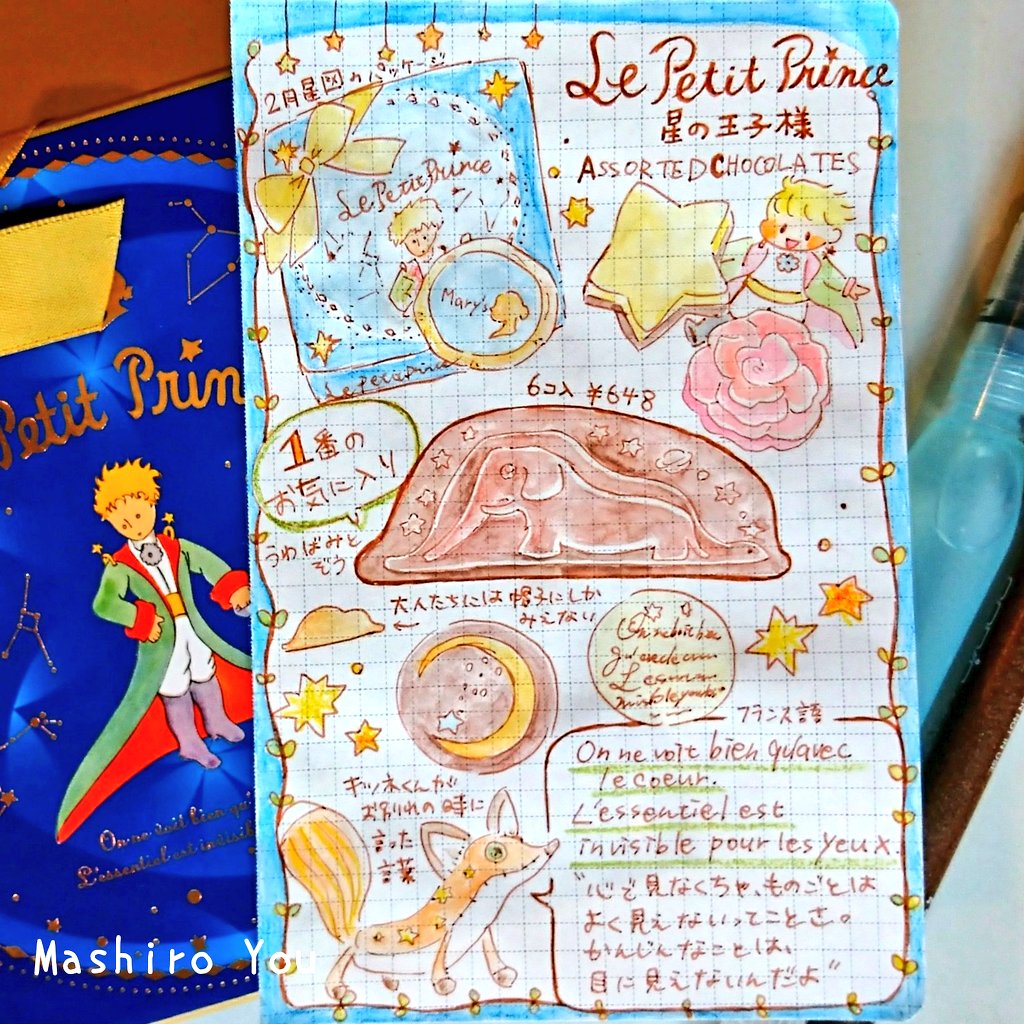 2月星図のパッケージ
Le Petit Prince
星の王子様
ASSORTED CHOCOLATES
Le Petit Prince
Mary's
Le Petit Prince
6コ入 ¥648
1番の
お気に入り
うわばみと
ぞう
大人たちには帽子にしか
みえない
フランス語
On ne voit bien qu'avec
le coeur.
L'essentiel est
invisible pour les yeux
キツネくんが
お別れの時に
言った
言葉
"心で見なくちゃ、ものごとは
よく見えないってことさ。
かんじんなことは、
目に見えないんだよ"
Petit Prin
On ne voit bien qu'
L'essentiel est invisibl
Mashiro You